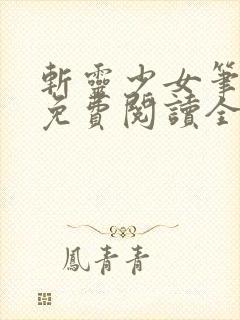 斬靈少女筆
免費閱讀全
鳳青青